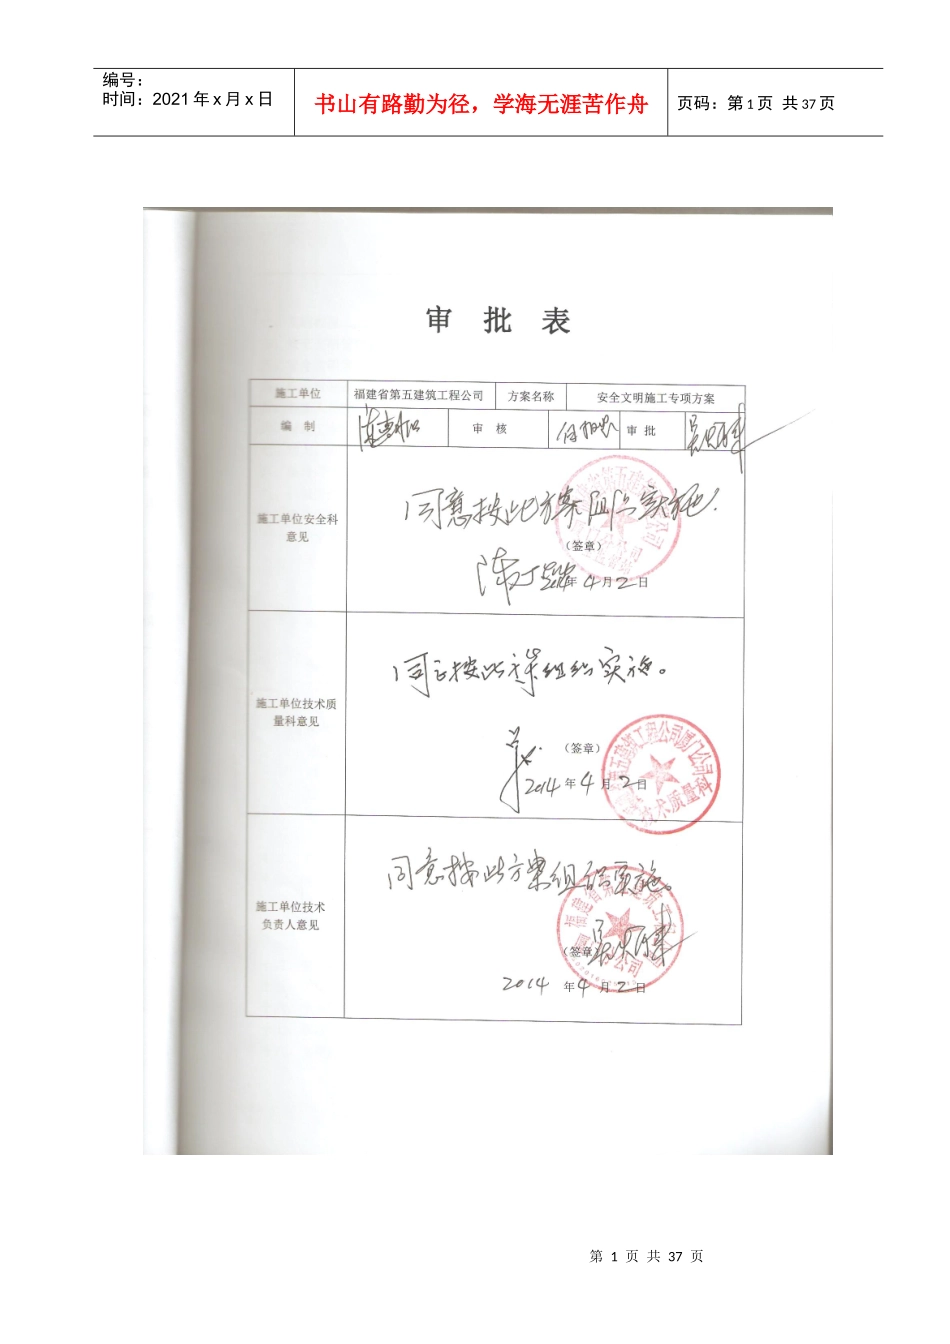 编号：
时间：2021年x月x日
书山有路勤为径，学海无涯苦作舟
页码：第1页 共37页
审 批 表
施工单位 福建省第五建筑工程公司 方案名称 安全文明施工专项方案
编 制 审 核 审 批
施工单位安全科
意见
同意按此方案组织实施.
（签章）
年4月2日
施工单位技术质
量科意见
同意按此方案组织实施。
（签章）
2014年4月2日
施工单位技术
负责人意见
同意按此方案组织实施。
（签章）
2014年4月2日
第 1 页 共 37 页